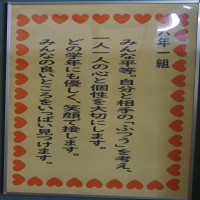 六年一組
みんな平等、自分と相手の「ふつう」を考え、
一人一人の心と個性を大切にします。
どの学年にも優しく、笑顔で接します。
みんなの良いところをいっぱい見つけます。